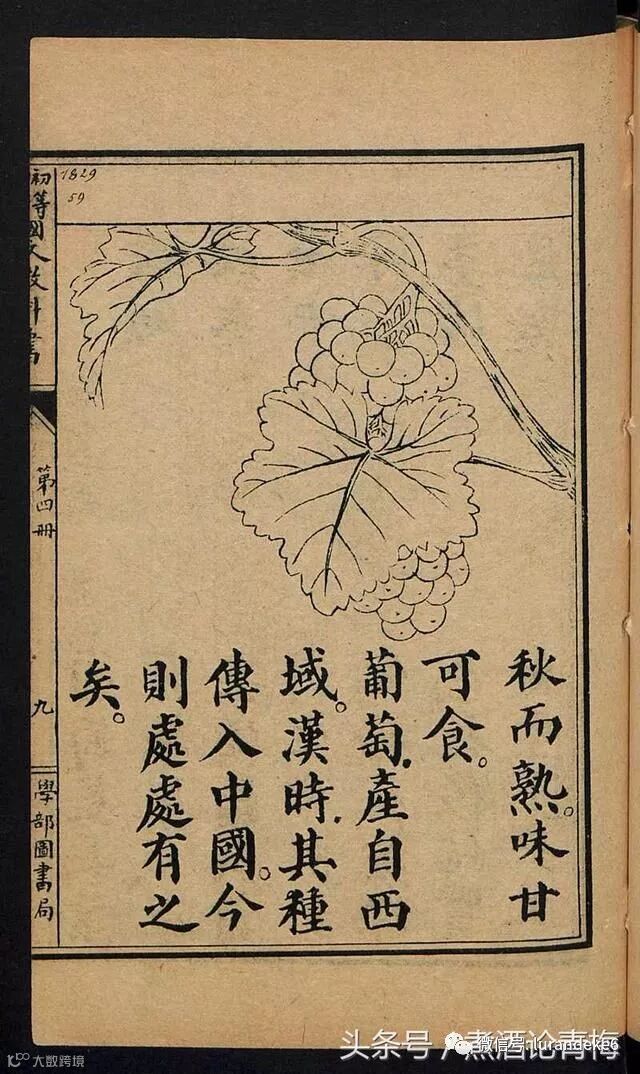 秋而熟。味甘
可食。
葡萄,產自西
域。漢時,其種
傳入中國。今
則處處有之
矣。
初等國文教科書
第四冊
九
學部圖書局
1829
59
头条号 / 煮酒论青梅
微信号: lurandeke6
大数跨境